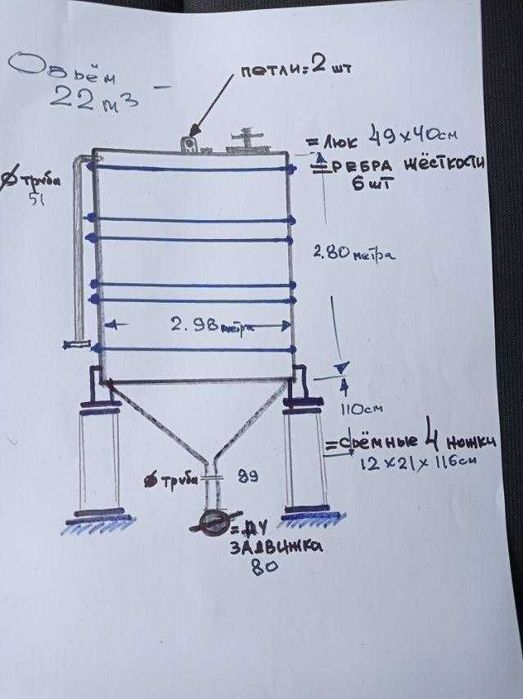 Объём
22 м3 -
петли = 2 шт
= люк 49 x 40 см
= РЕБРА ЖЁСТКОСТИ
6 шт
Ø труба
51
2.80 метра
2.98 метра
110 см
= съёмные 4 ножки
12 x 21 x 116 см
Ø труба 89
= ДУ
ЗАДВИЖКА
80